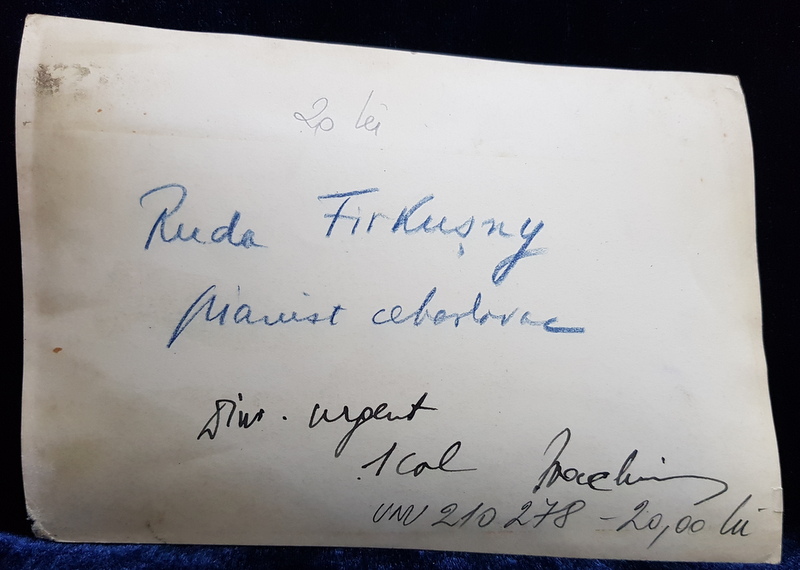 20 lei
Ruda Firkușny
pianist cehoslovac
Dim. urgent
1 col
VNV 210 278 - 20,00 lei